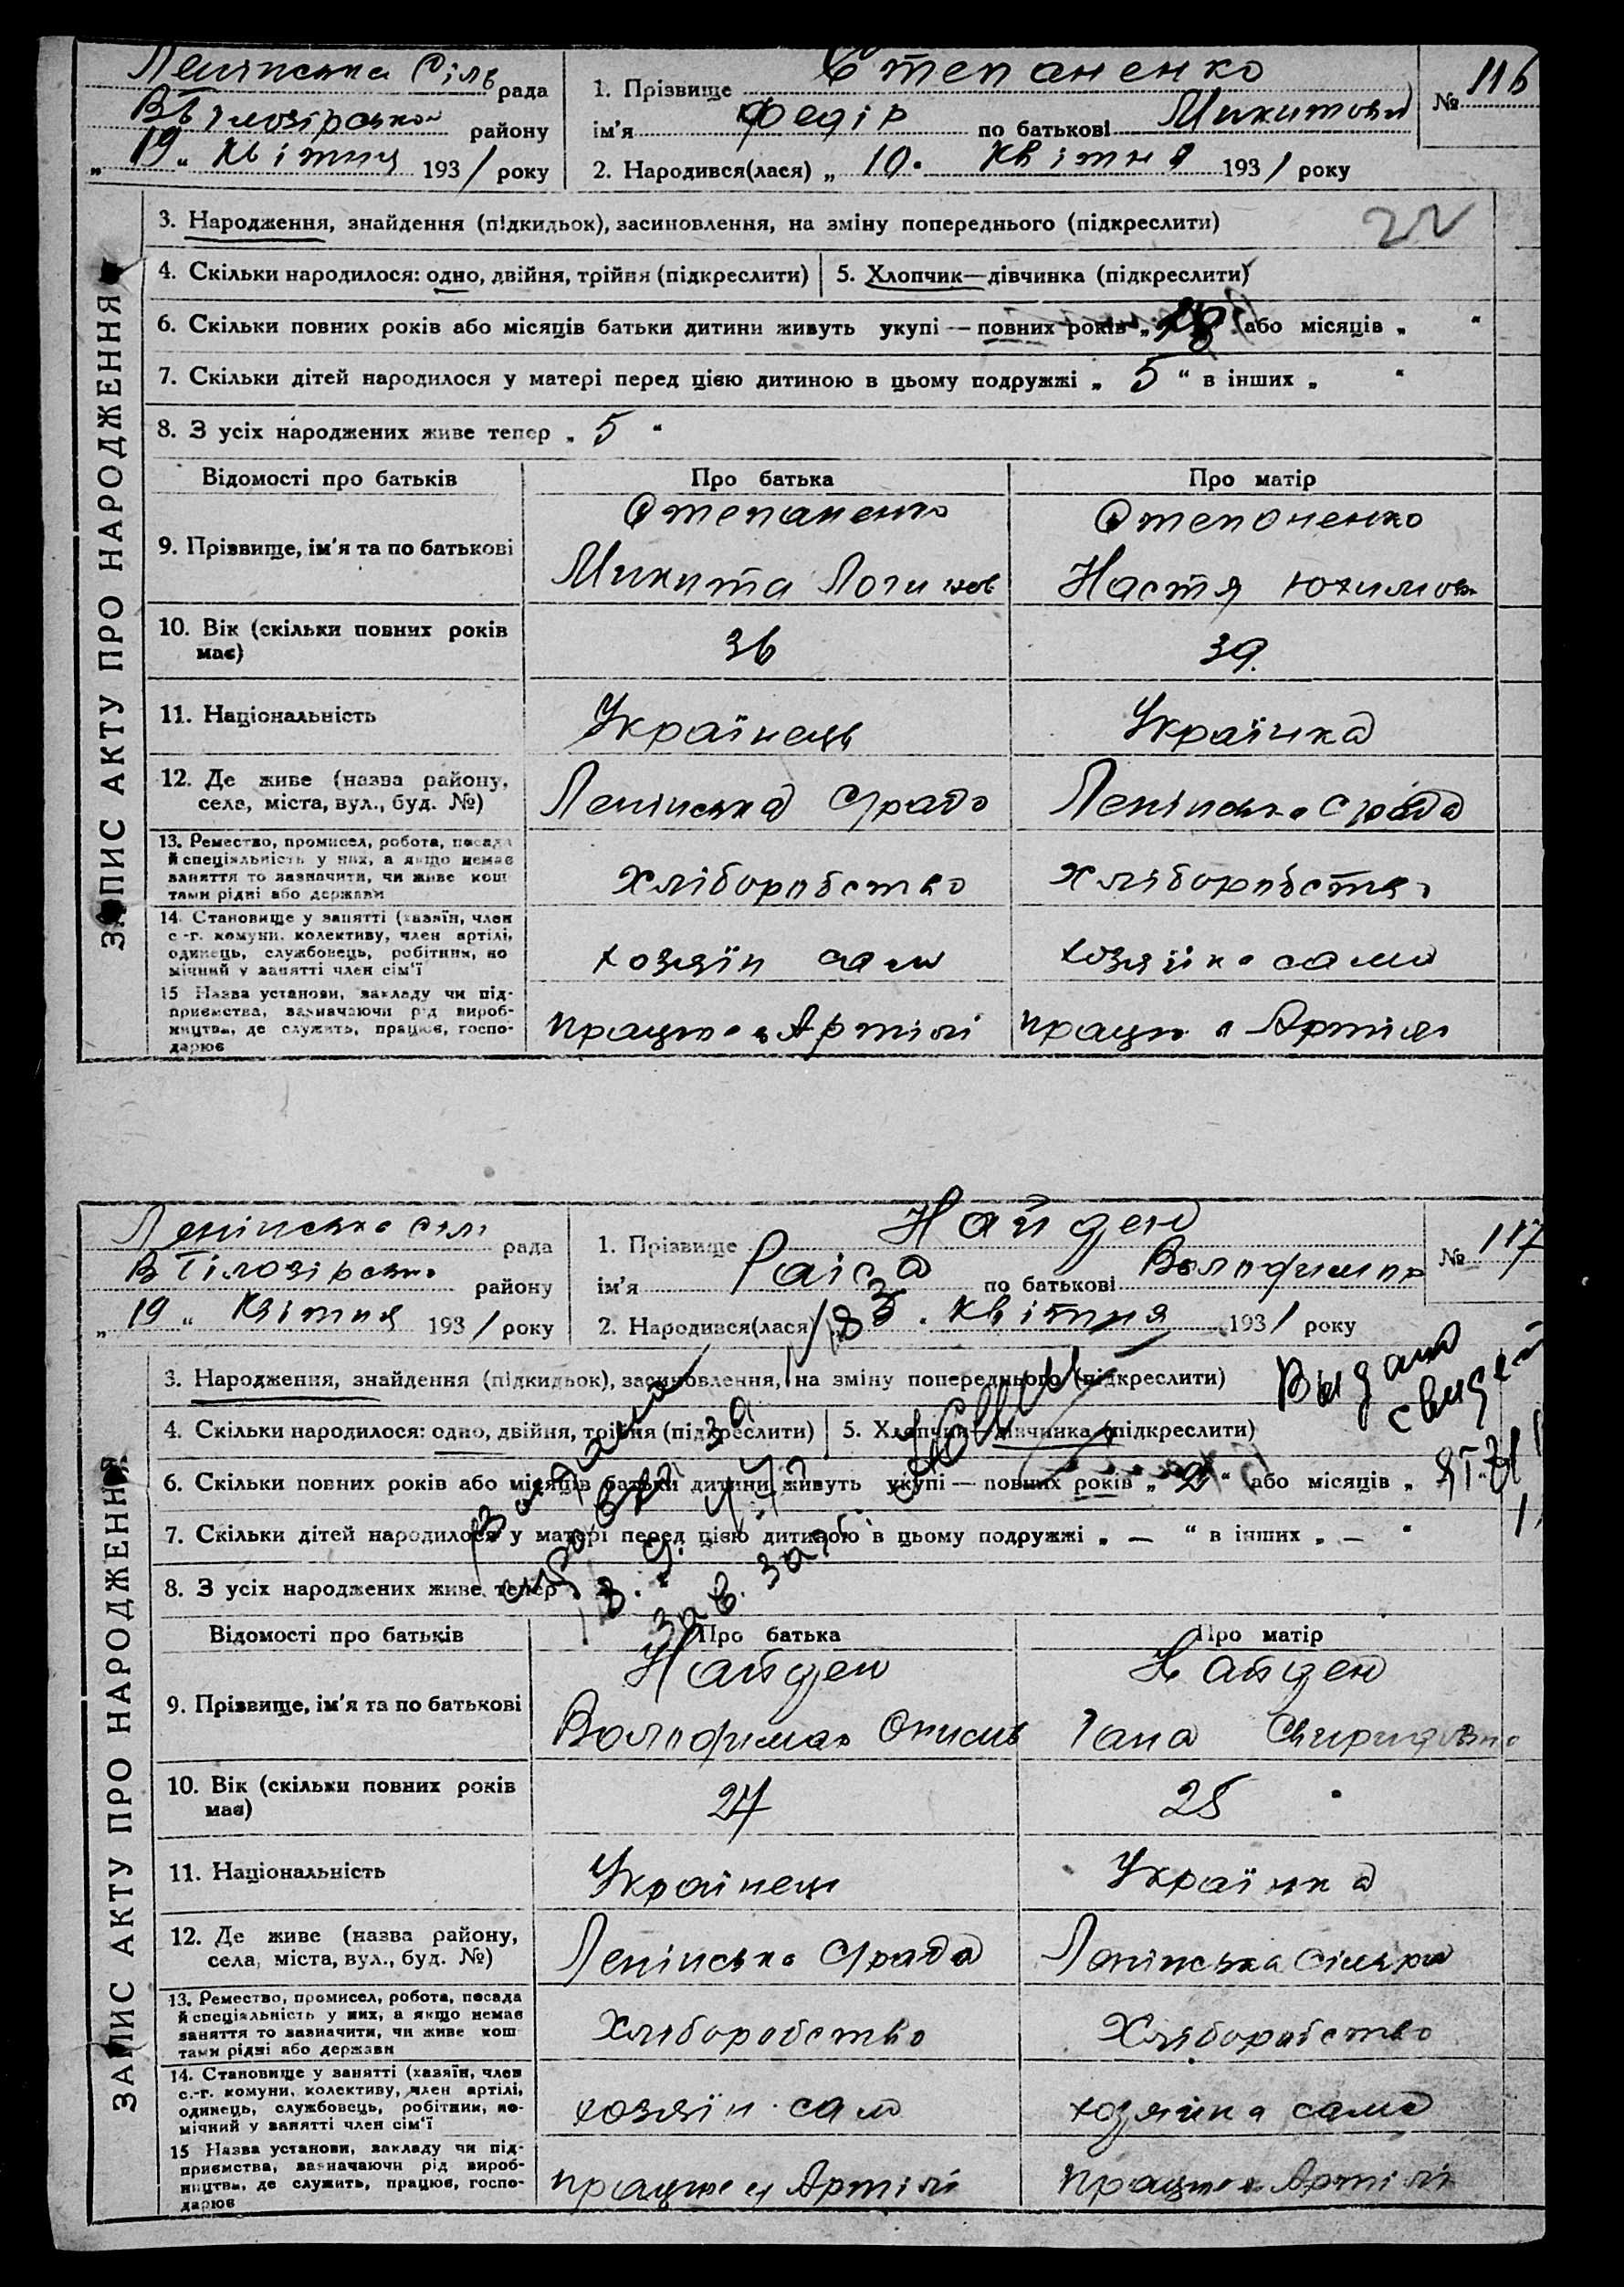 Ленінська Сіль рада
району
„ 19 “ Квітня 1931 року
1. Прізвище Степаненко
ім'я Федір по батькові Микитови
№ 116
2. Народився(лася) „ 10 “ Квітня 1931 року
ЗАПИС АКТУ ПРО НАРОДЖЕННЯ
3. Народження, знайдення (підкидьок), засиновлення, на зміну попереднього (підкреслити)
22
4. Скільки народилося: одно, двійня, трійня (підкреслити)
5. Хлопчик—дівчинка (підкреслити)
6. Скільки повних років або місяців батьки дитини живуть укупі — повних років „ “ або місяців „ “
7. Скільки дітей народилося у матері перед цією дитиною в цьому подружжі „ 5 “ в інших „ “
8. З усіх народжених живе тепер „ 5 “
Відомості про батьків Про батька Про матір
9. Прізвище, ім'я та по батькові
Степаненко
Микита Логинов
Степоненко
Настя Юхимов
10. Вік (скільки повних років має)
36 39.
11. Національність
Українець Українка
12. Де живе (назва району,
села, міста, вул., буд. №)
Ленінська Срада Ленінська Срада
13. Ремество, промисел, робота, посада
й спеціяльність у них, а якщо немає
заняття то зазначити, чи живе кош-
тами рідні або держави
Хліборобство Хліборобство
14. Становище у занятті (хазяїн, член
с.-г. комуни, колективу, член артілі,
одинець, службовець, робітник, по-
мічний у занятті член сім'ї
хозяїн сам хозяйка сама
15 Назва установи, закладу чи під-
приємства, зазначаючи рід вироб-
ництва, де служить, працює, госпо-
дарює
працює в Артілі працює в Артілі
Ленінська сіл рада
району
„ 19 “ Квітня 1931 року
1. Прізвище Найден
ім'я Раїса по батькові Володимир
№ 117
2. Народився(лася) квітня 1931 року
ЗАПИС АКТУ ПРО НАРОДЖЕННЯ
3. Народження, знайдення (підкидьок), засиновлення, на зміну попереднього (підкреслити)
Выдано
свидет
4. Скільки народилося: одно, двійня, трійня (підкреслити)
5. Хлопчик—дівчинка (підкреслити)
6. Скільки повних років або місяців батьки дитини живуть укупі — повних років „ 2 “ або місяців „
7. Скільки дітей народилося у матері перед цією дитиною в цьому подружжі „ — “ в інших „ — “
8. З усіх народжених живе тепер
Відомості про батьків Про батька Про матір
9. Прізвище, ім'я та по батькові
Найден
Володимир
Найден
Гана Свиридовна
10. Вік (скільки повних років має)
27 25
11. Національність
Українець Українка
12. Де живе (назва району,
села, міста, вул., буд. №)
Ленінська Срада Ленінська
13. Ремество, промисел, робота, посада
й спеціяльність у них, а якщо немає
заняття то зазначити, чи живе кош-
тами рідні або держави
Хліборобство Хліборобство
14. Становище у занятті (хазяїн, член
с.-г. комуни, колективу, член артілі,
одинець, службовець, робітник, по-
мічний у занятті член сім'ї
хозяїн сам хозяйка сама
15 Назва установи, закладу чи під-
приємства, зазначаючи рід вироб-
ництва, де служить, працює, госпо-
дарює
працює в Артілі працює в Артілі